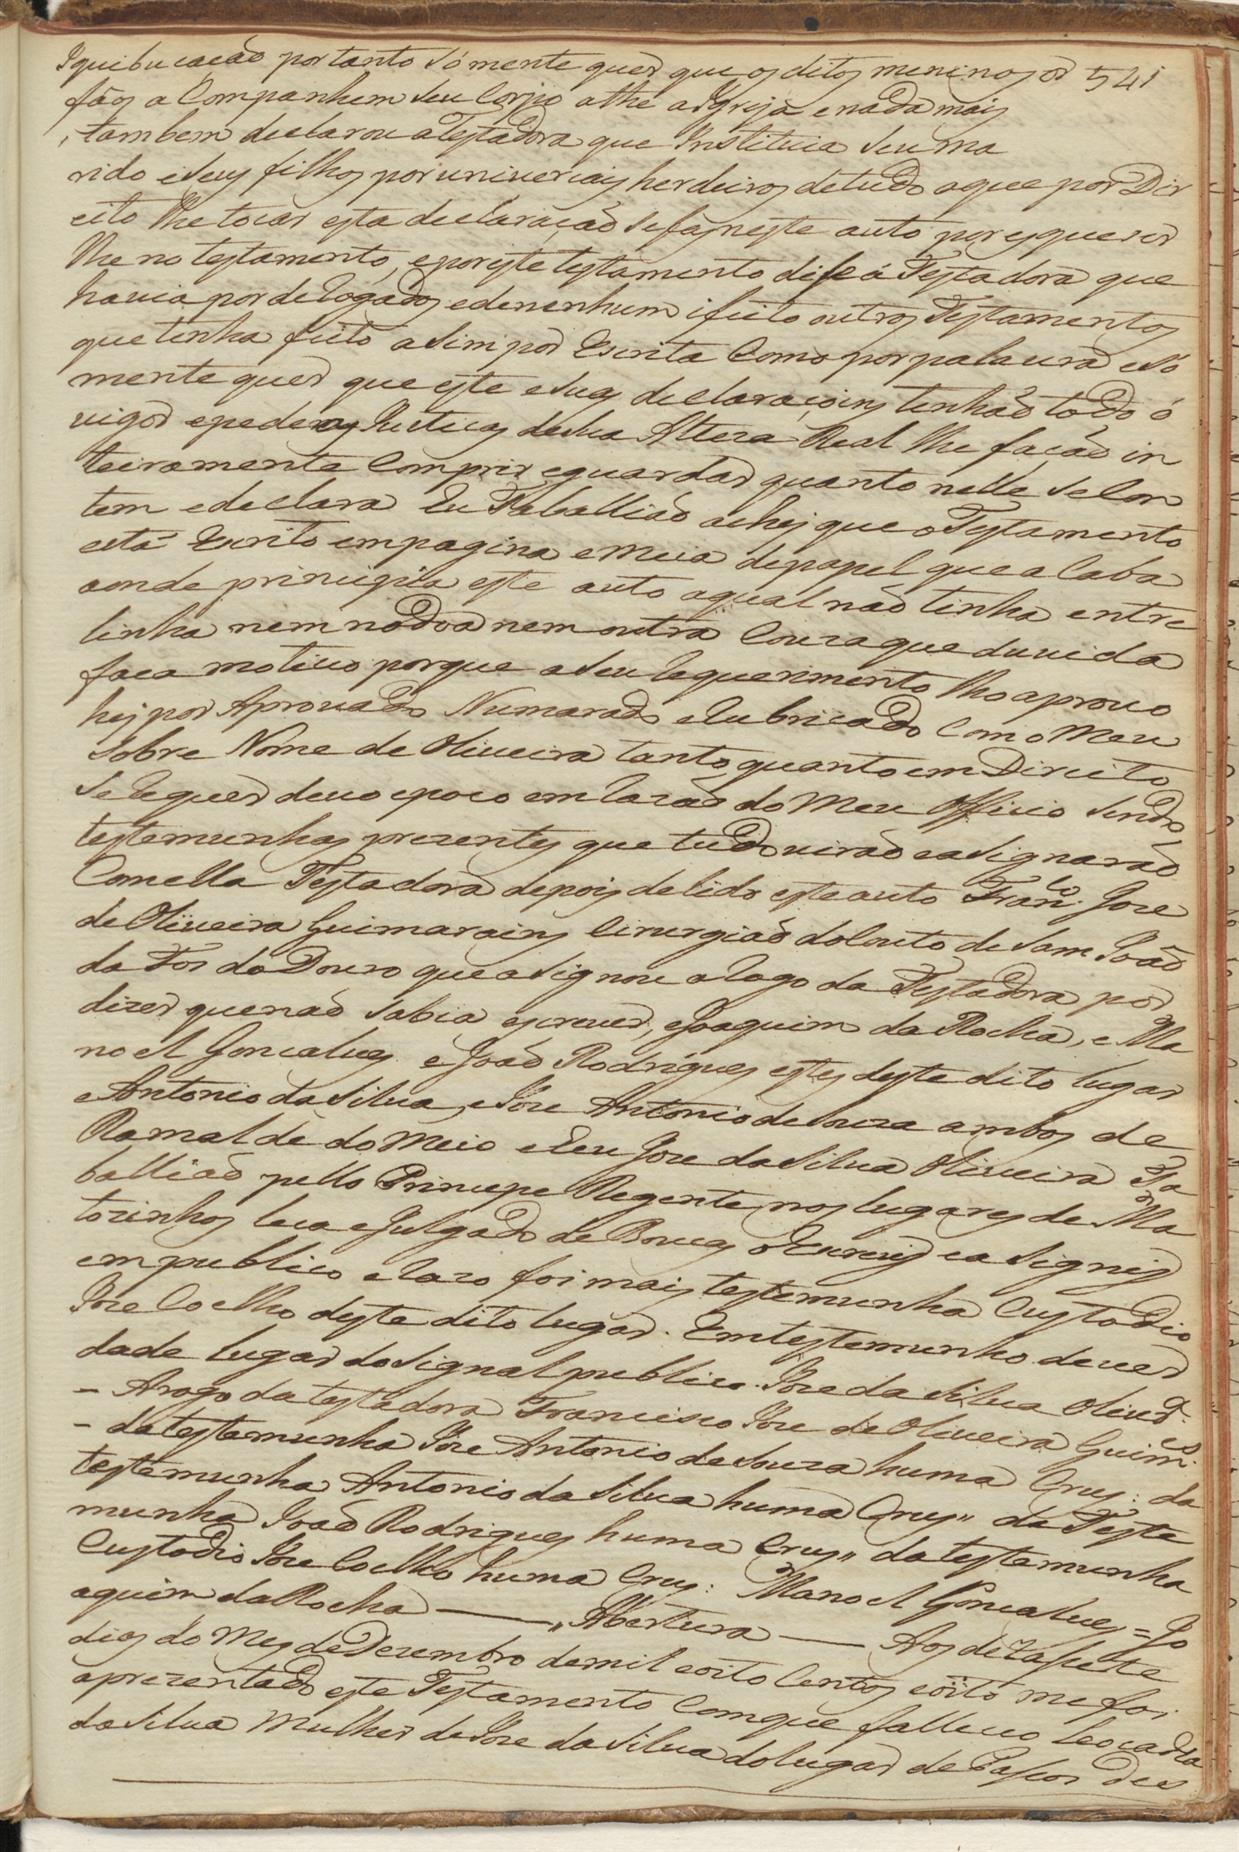 Iquibucação portanto sómente quer que os ditos meninos or 541
fãos a Companhem seu Corpo athe a Igreja e nada mais
, tambem declarou a Testadora que Instituia seu ma
rido e seus filhos por univerçais herdeiros de tudo aquee por Dir
eito lhe tocar esta declaração se fas neste auto por esquecer
lhe no testamento, e por este testamento dise á Testadora que
havia por de Rogados e de nenhum ifeito outros Testamentos
que tinha feito asim por Escrita Como por palaura e só
mente quer que este e suas declaraçoins tenhaõ todo ó
uigor e pede as Justiças de sua Alteza Real lhe façaõ in
teiramente Comprir e guardar quanto nelle se Con
tem e declara Eu Taballiaõ achei que o Testamento
está Escrito em pagina e Meia de papel que a Caba
aonde principia este auto a qual naõ tinha entre
linha nem nodoa nem outra Couza que duuida
faca motivo porque a seu Requerimento lho aprouo
hei por Aprouado Numarado e Rubricado Com o Meu
sobre Nome de Oliueira tanto, quanto em Direito
se Requer deuo e poco em Razaõ do Meu Officio sendo
testemunhas prezentes que tudo uiraõ e asignaraõ
Com ella Testadora depois de lido este auto Fran.co Joze
de Oliueira Guimarains Cirurgiaõ do Couto de Sam Joaõ
da Fos do Douro que asignou a Rogo da Testadora por
dizer que naõ sabia escreuer, e Joaquim da Rocha, e Ma
noel Goncalues e Joaõ Rodrigues estes deste dito lugar
e Antonio da Silua, e Joze Antonio de Souza ambos de
Ramalde do Meio e Eu Joze da Silua Oliueira Ta
balliaõ pello Principe Regente nos lugares de Ma
tozinhos leca e Julgado de Boucas o Escreui e a signei
em publico e Razo foi mais testemunha Custodio
Joze Coelho deste dito lugar. Em testemunho de uer
dade lugar do signal publico. Joze da Silua Oliur.ª
- A rogo da testadora Francisco Joze de Oliueira Guim.es
- da testemunha Joze Antonio de Souza huma Crus: da
testemunha Antonio da Silua huma Crus,, da Teste
munha Joaõ Rodrigues huma Crus,, da testemunha
Custodio Joze Coelho huma Crus: Manoel Goncalues = Jo
aquim da Rocha ——— ,, Abertura ——— Aos dezasete
dias do Mes de Dezembro de mil eoito Centos eoito me foi
aprezentado este Testamento Com que falleceo Leocadia
da Silua Mulher de Joze da Silua do lugar de Passos des